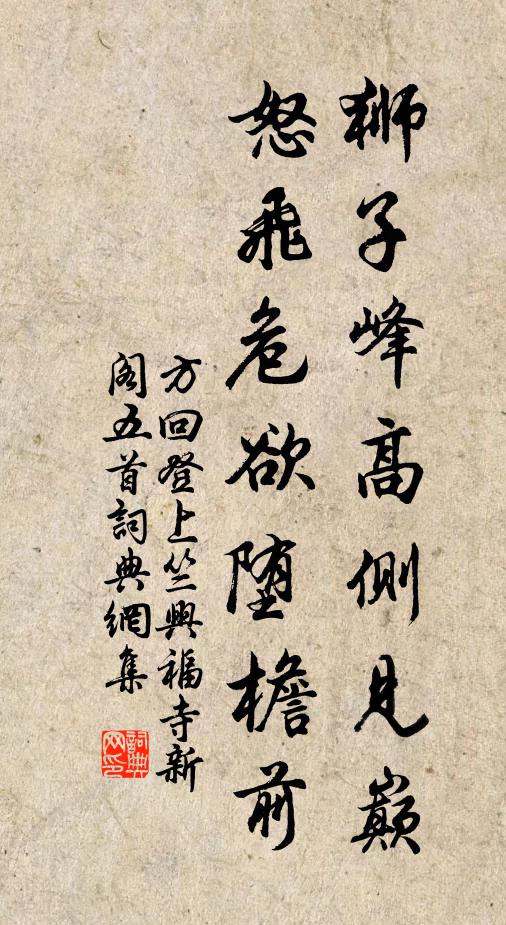 獅子峰高側見巔
怒飛危欲堕檐前
方回登上竺興福寺新
閣五首詞典網集
詞典
网印